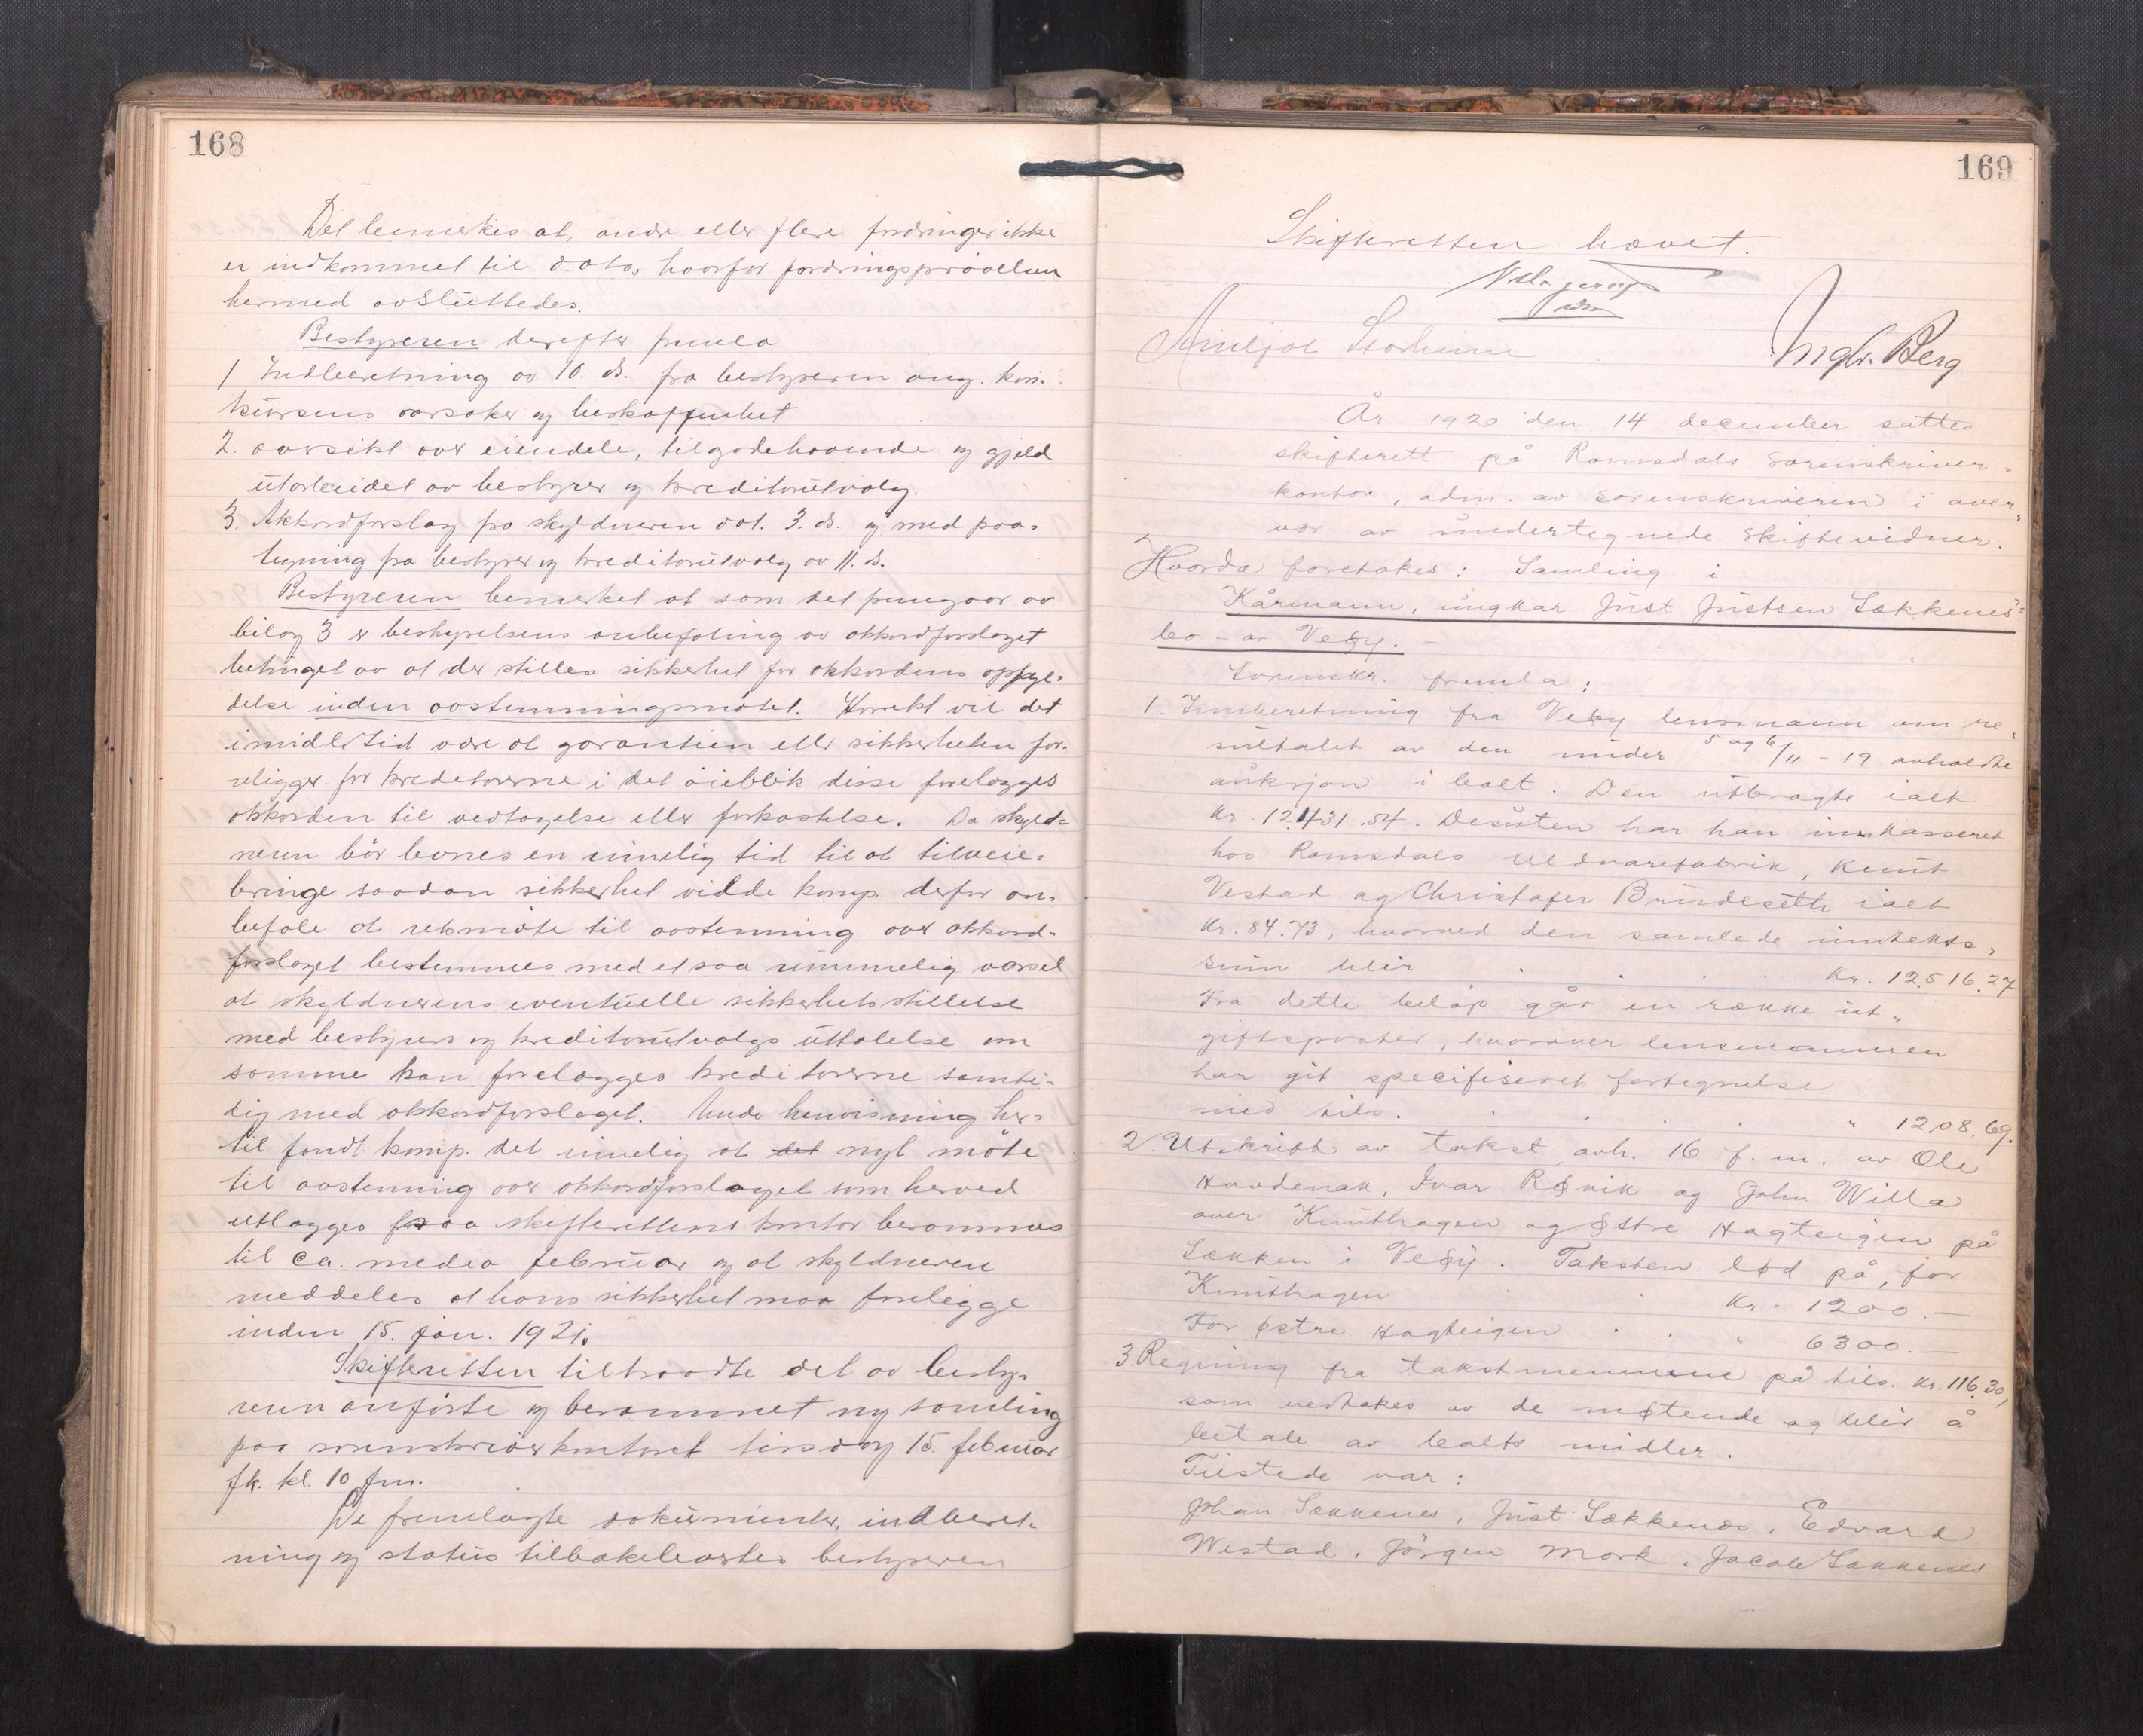 168
Det bemerkes at, andre eller flere fordringer ikke
er indkommet til dato, hvorfor fordringsprøvelsen
hermed avsluttedes.
Bestyreren derefter fremla
1 Indberetning av 10. ds. fra bestyreren ang. kon-
kursens aarsaker og beskaffenhet
2. oversikt over eiendele, tilgodehavende og gjeld
utarbeidet av bestyrer og kreditorutvalg.
3. Akkordforslag fra skyldneren dat. 3. ds. og med paa-
tegning fra bestyrer og kreditorutvalg av 11. ds.
Bestyreren bemerket at som det fremgaar av
bilag 3 er bestyrelsens anbefaling av akkordforslaget
betinget av at der stilles sikkerhet for akkordens opfyl-
delse inden avstemningsmøtet. Korrekt vil det
imidlertid være at garantien eller sikkerheten fore-
religger for kreditorerne i det øieblik disse forelægges
akkorden til vedtagelse eller forkastelse. Da skyld-
neren bør levnes en rimelig tid til at tilveie-
bringe saadan sikkerhet vilde komp. derfor an-
befale at retsmøte til avstemning over akkord-
forslaget bestemmes med et saa rummelig varsel
at skyldnerens eventuelle sikkerhetsstillelse
med bestyrers og kreditorutvalgs uttalelse om
samme kan forelægges kreditorerne samti-
dig med akkordforslaget. Under henvisning her-
til fandt komp. det rimelig at det nyt møte
til avstemning over akkordforslaget som herved
utlægges paa skifterettens kontor berammes
til ca. medio februar og at skyldneren
meddeles at hans sikkerhet maa foreligge
inden 15. jan. 1921.
Skifteretten tiltraadte det av besty-
reren anførte og berammet ny samling
paa sorenskriverkontoret tirsdag 15. februar
fk. kl. 10 fm.
De fremlagte dokumenter, indberet-
ning og status tilbakelevertes bestyreren
169
Skifteretten hævet.
Ingbr. Berg
År 1920 den 14 december sattes
skifterett på Romsdals sorenskriver-
kontor, adm. av sorenskriveren i over-
vær av undertegnede skiftevidner.
Hvorda foretokes: Samling i
Kårmann, ungkar Just Justsen Sækkenes'
bo - av Veøy. -
Sorenskr. fremla:
1. Innberetning fra Veøy lensmann om re-
sultatet av den under 5 og 6/11 - 19 avholdte
auksjon i boet. Den utbragte ialt
kr. 12.431.54. Desuten har han innkasseret
hos Romsdals Uldvarefabrik, Knut
Vestad og Christofer Brudesæth ialt
kr. 84.73, hvorved den samlede inntekts-
sum blir kr. 12.516.27
Fra dette beløp går en række ut-
giftsposter, hvorover lensmannen
har git specifiseret fortegnelse
med tils. " 1208.69.
2. Utskrift av takst avh. 16 f. m. av Ole
Hovdenak, Ivar Røvik og John Willa
over Knuthagen og Østre Hagteigen på
Sækken i Veøy. Taksten lød på, for
Knuthagen kr. 1200.—
For østre Hagteigen " 6300.—
3. Regning fra takstmennene på tils. kr. 116.30,
som vedtokes av de møtende og blir å
betale av boets midler.
Tilstede var:
Johan Sækkenes, Just Sækkenes, Edvard
Westad, Jørgen Mork, Jacob Sækkenes